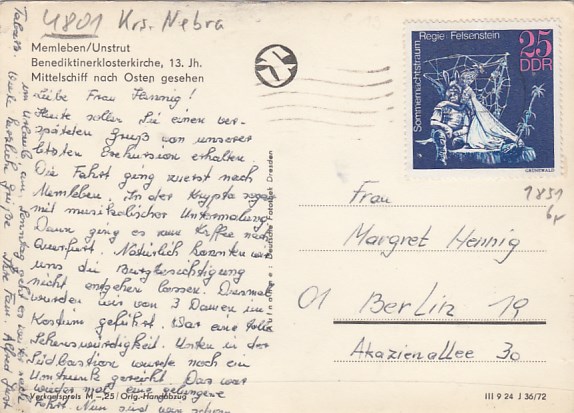 4801 Krs. Nebra
Memleben/Unstrut
Benediktinerklosterkirche, 13. Jh.
Mittelschiff nach Osten gesehen
Liebe Frau Hennig!
Heute sollen Sie einen ver-
späteten Gruß von unserer
letzten Exkursion erhalten.
Die Fahrt ging zuerst nach
Memleben. In der Krypta sogar
mit musikalischer Untermalung.
Dann ging es zum Kaffee nach
Querfurt. Natürlich konnten wir
uns die Burgbesichtigung
nicht entgehen lassen. Diesmal
wurden wir von 3 Damen im
Kostüm geführt. Das war eine tolle
Sehenswürdigkeit. Unten in der
Südbastion wurde noch ein
Umtrunk gereicht. Das war
wieder mal eine gelungene
Fahrt. Nun sind wir schon
im Urlaub und Sonntag geht es
Tabarz. Viele herzliche Grüße Ihre Fam.
Aufnahme: Deutsche Fotothek Dresden
Verkaufspreis M -,25 / Orig.-Handabzug
Sommernachtstraum
Regie: Felsenstein
25
DDR
GRÜNEWALD
1831
Frau
Margret Hennig
01 Berlin 19
Akazienallee 30
III 9 24 J 36/72